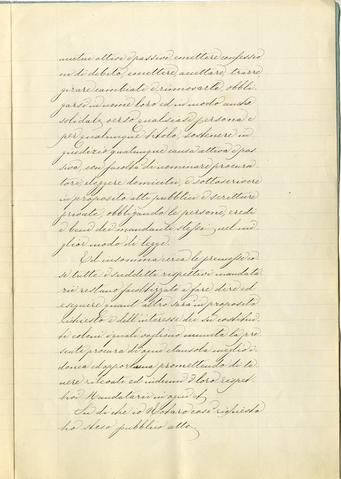 mutui attivi e passivi emettere confessio
ni di debito, emettere, accettare, trarre
girare cambiali e rinnovarle, obbli
garsi in nome loro ed in modo anche
solidale, verso qualsiasi persona e
per qualunque titolo, sostenere in
giudizio qualunque causa attiva e pas
siva, con facoltà di nominare procura
tori, elegere domicilii, e sottoscrivere
in proposito atti pubblici e scritture
private, obbligando le persone, eredi
e beni dei mandanti stessi nel mi
glior modo di legge.
Ed insomma circa le premesse co
se tutte i suddetti rispettivi mandata
rii restano facoltizzati a fare dire ed
eseguire quant'altro sarà in proposito
richiesto e dell'interesse dei lor costituen
ti coloni quali vogliono munita la pre
sente procura di ogni clausola migliore
donea ed opportuna promettendo di te
nere rilevati ed indenni i loro rispet
tivi Mandatarii in ogni
Su di che io Notaro così richiesto
ho steso pubblico atto